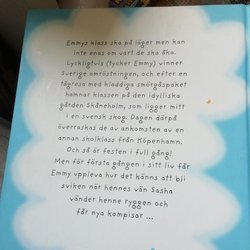 Emmys klass ska på läger men kan
inte enas om vart de ska åka.
Lyckligtvis (tycker Emmy) vinner
Sverige omröstningen, och efter en
tågresa med kladdiga smörgåspaket
hamnar klassen på den idylliska
gården Skåneholm, som ligger mitt
i en svensk skog. Dagen därpå
överraskas de av ankomsten av en
annan skolklass från Köpenhamn.
Och så är festen i full gång!
Men för första gången i sitt liv får
Emmy uppleva hur det känns att bli
sviken när hennes vän Sasha
vänder henne ryggen och
får nya kompisar ...